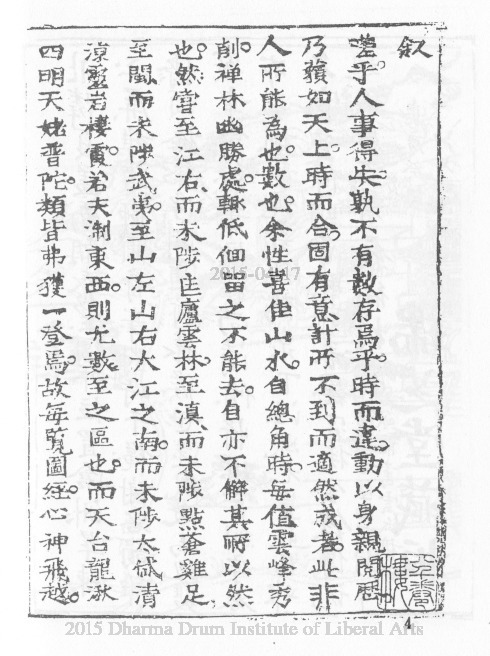 敘
嗟乎。人事得失。孰不有數存焉乎。時而違。動以身親閱
乃藐如天上時而合。固有意計所不到而適然成者。此非
人所能為也。數也。余性喜佳山水。自總角時。每值雲峰秀
削禅林幽勝處。輒低佪畱之不能去。自亦不解其所以然
也。然嘗至江右而未陟匡廬雲林。至滇而未陟點蒼雞足
至閩而未陟武夷。至山左山右大江之南。而未陟太岱清
涼盤岩棲霞。若夫淛東西。則尤數至之區也。而天台龍湫
四明天姥普陀。類皆弗獲一登焉。故每覽圖經。心神飛越。
4
2015 Dharma Drum Institute of Liberal Arts